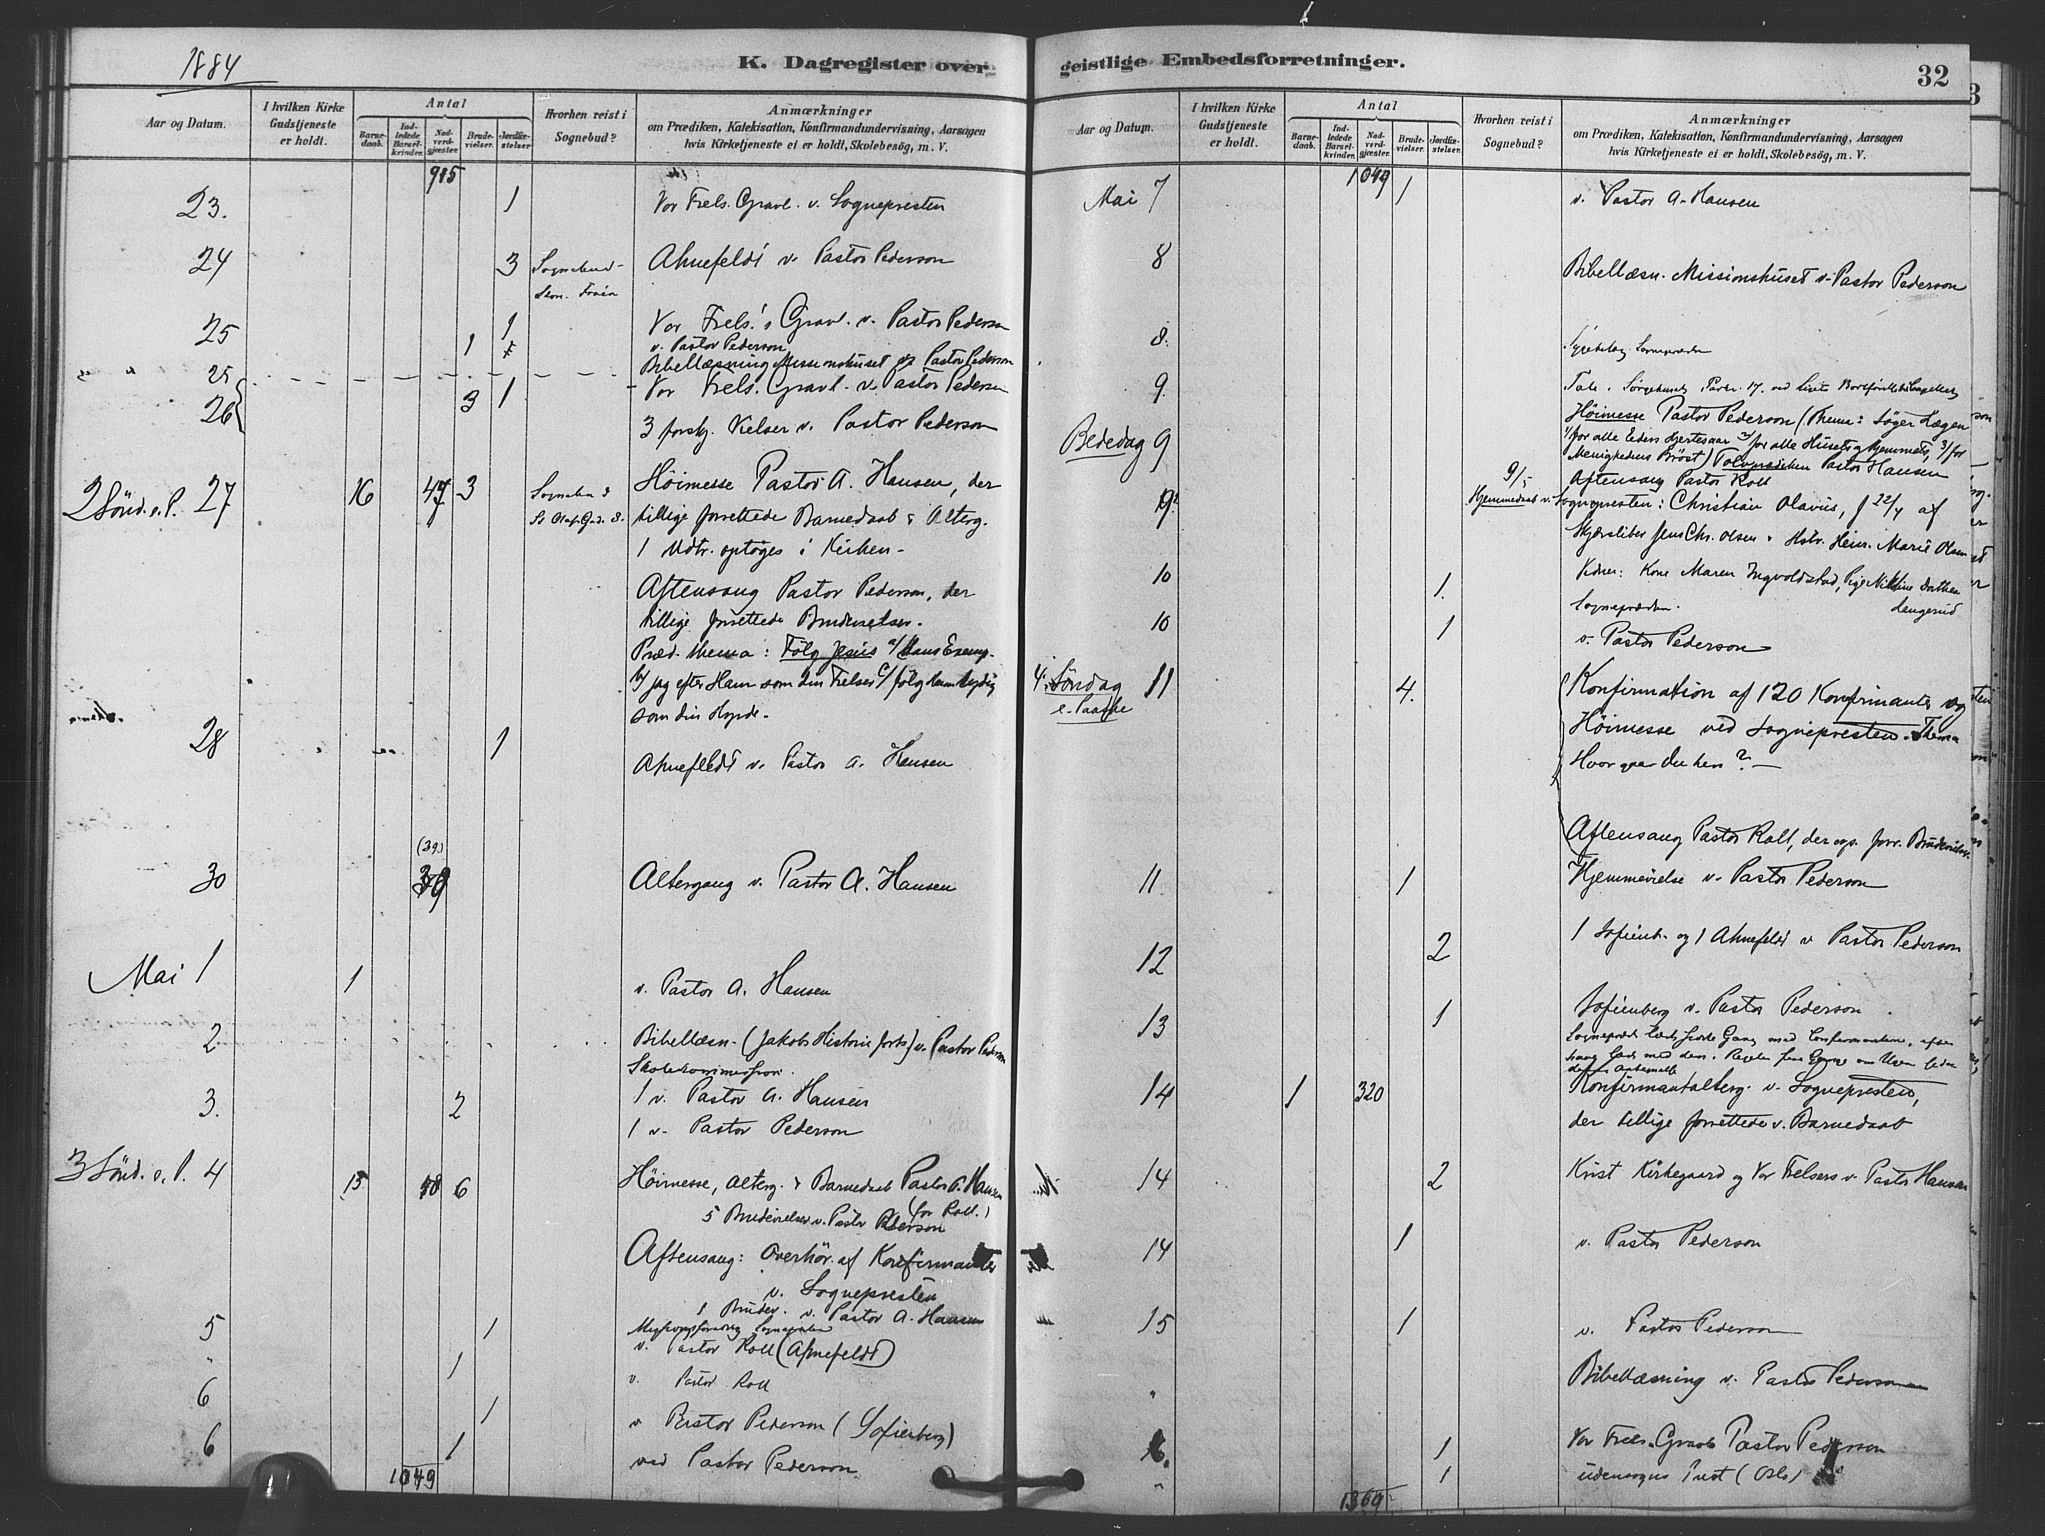 1884
K. Dagregister over
Aar og Datum.
I hvilken Kirke Gudstjeneste er holdt.
Antal
Barnedaab.
Indledede Barselkvinder.
Nadverdgjester.
Brudevielser.
Jordfæstelser.
Hvorhen reist i Sognebud?
Anmærkninger
om Prædiken, Katekisation, Konfirmandundervisning, Aarsagen
hvis Kirketjeneste ei er holdt, Skolebesög, m. V.
985
23. 1 Vor Frels. Gravl. v. Sognepresten
24 3 Sognebud Ahnefeldt v. Pastor Pederson
25 1 Vor Frels.'s Grav. v. Pastor Pederson
1 v. Pastor Pederson
Bibellæsning Missionshuset v. Pastor Pederson
25 Vor Frels. Gravl. v. Pastor Pedersen
26 3 1
3 forskj. Vielser v. Pastor Pederson
2 Sönd. e. P. 27 16 47 3 Höimesse Pastor A. Hansen, der
tillige forrettede Barnedaab & Alterg.
1 Udtr. optoges i Kirken -
Aftensang Pastor Pederson, der
tillige forrettede Brudevielser.
Præd. thema: Fölg Jesus a/ Hans Exemp.
b/ jag efter Ham som din Frelser c/ fölg Ham lydig
som din Hyrde.
28 1 Ahnefeldt v. Pastor A. Hansen
(39)
30 39 Altergang v. Pastor A. Hansen
Mai 1 1 v. Pastor A. Hansen
2 Bibellæsn. (Jakobs Historie forts.) v. Pastor Pederson
Skolekommission.
3. 2 1 v. Pastor A. Hansen
1 v. Pastor Pederson
3 Sönd. e. P. 4 15 18 6 Höimesse, Alterg. & Barnedaab Pastor A. Hansen
(for Roll.)
5 Brudevielser v. Pastor Pederson
Aftensang: Overhör. af Konfirmanter
v. Sognepresten
1 Brudev. v. Pastor A. Hansen
5 1 v. Pastor Roll (Ahnefeldt)
" 1 v. Pastor Roll
6 1 v Pastor Pederson (Sofienberg)
6 1 ved Pastor Pederson
1049
geistlige Embedsforretninger.
32
Aar og Datum.
I hvilken Kirke Gudstjeneste er holdt.
Antal
Barnedaab.
Indledede Barselkvinder.
Nadverdgjester.
Brudevielser.
Jordfæstelser.
Hvorhen reist i Sognebud?
Anmærkninger
om Prædiken, Katekisation, Konfirmandundervisning, Aarsagen
hvis Kirketjeneste ei er holdt, Skolebesög, m. V.
1049
Mai 7 1 v. Pastor A. Hansen
8 Bibellæsn. Missionshuset v. Pastor Pederson
8.
9.
Bededag 9 Höimesse Pastor Pederson (Thema: Söger Lægen
1/ for alle Eders Hjertesaar 2/ for alle Husets og Hjemmets, 3/ for
Menighedens Bröst) Tolvprædiken Pastor Hansen
Aftensang Pastor Roll
9/5
9. Hjemmedaab v. Sognepresten: Christian Olavus, f 22/4 af
Jens Chr. Olsen & Hstr. Marie Olsen
10 1. Kone Maren Ingvoldstad, Pige
10 1 v. Pastor Pederson
4. Söndag e. Paaske 11 4. Konfirmation af 120 Konfirmanter og
Höimesse ved Sognepresten. Thema
Hvor gaar du hen? -
Aftensang Pastor Roll, der ogs. forr. Brudevielser.
11 1 Hjemmevielse v. Pastor Pederson
12 2 1 Sofienb. og 1 Ahnefeldt v Pastor Pederson
13 1 Sofienberg v. Pastor Pederson
14 1 320 Konfirmantalterg. v. Sognepresten,
der tillige forrettede v. Barnedaab
14 2 Krist Kirkegaard og Vor Frelsers v. Pastor Hansen
14 1 v. Pastor Pederson
15 1 v. Pastor Pederson
" Bibellæsning v. Pastor Pederson
6. 1 Vor Frels. Gravl. Pastor Pederson
" 1 udensogns Prest (Oslo)
1369